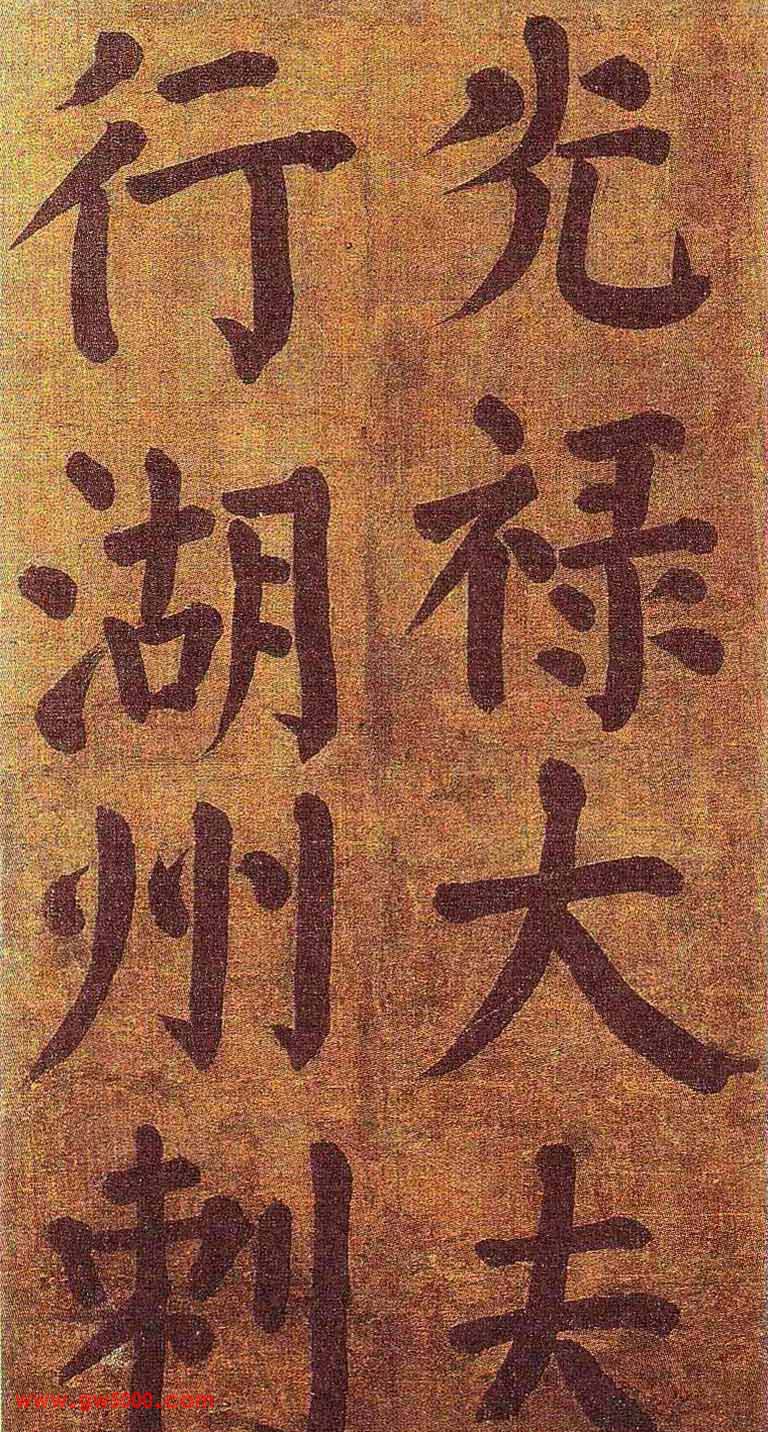 光禄大夫
行湖州刺
www.gw5000.com